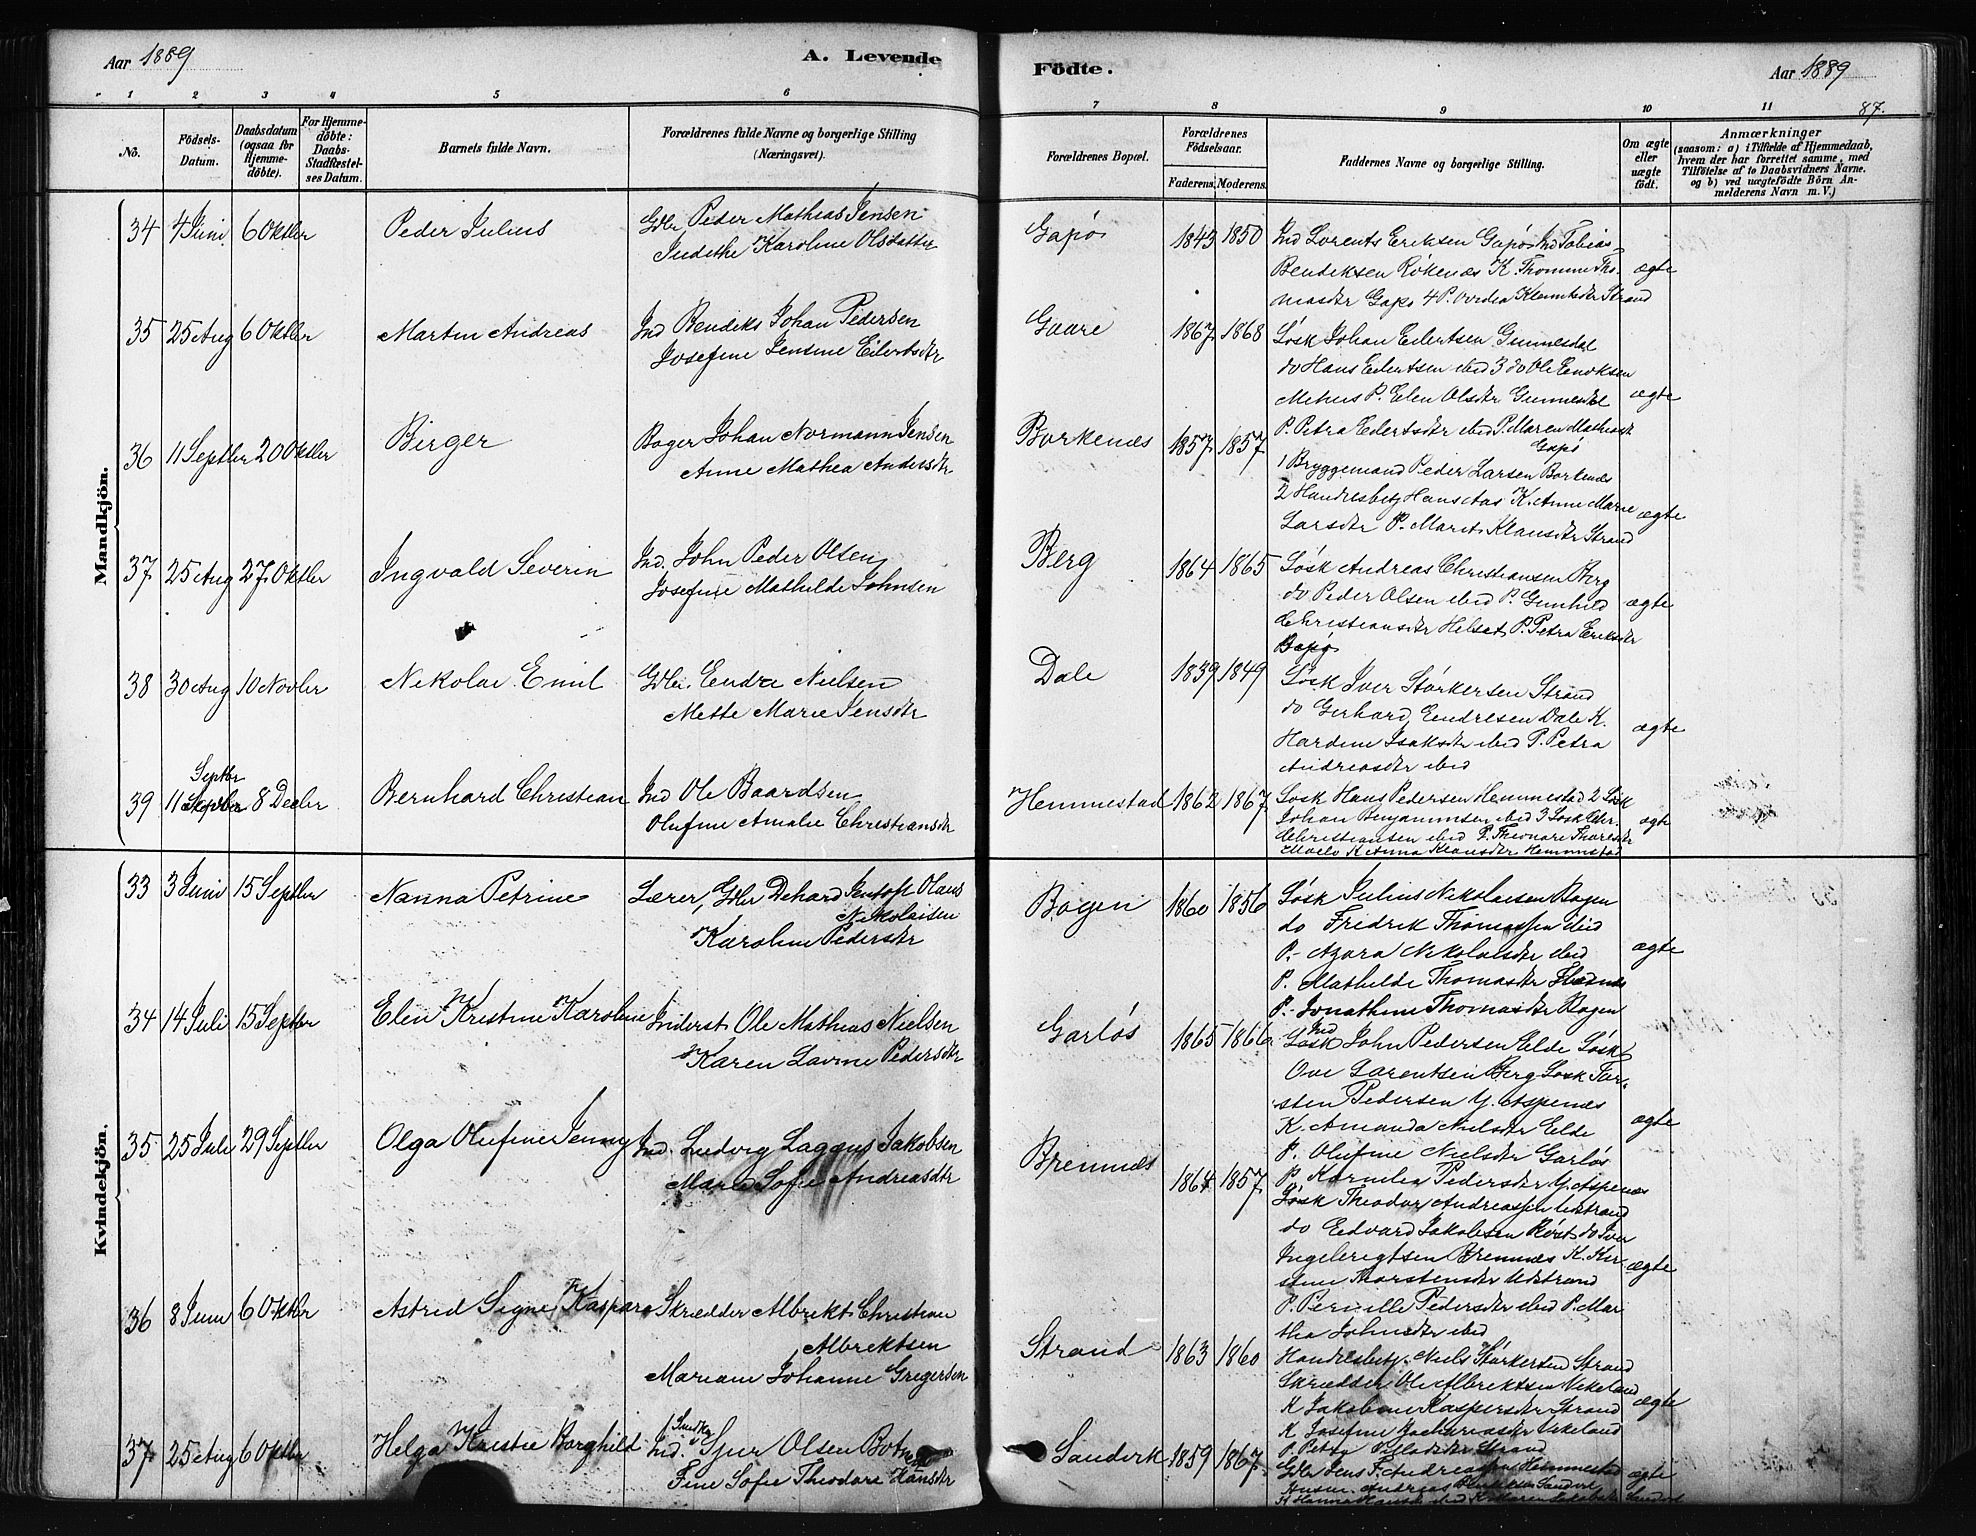 Aar 1889
A. Levende
Födte.
Aar 1889
1 2 3 4 5 6
7 8 9 10 11
87.
No.
Födsels-
Datum.
Daabsdatum
(ogsaa for
Hjemme-
döbte).
For Hjemme-
döbte:
Daabs-
Stadfæstel-
ses Datum.
Barnets fulde Navn.
Forældrenes fulde Navne og borgerlige Stilling
(Næringsvei).
Forældrenes Bopæl.
Forældrenes
Födselsaar.
Faderens. Moderens.
Faddernes Navne og borgerlige Stilling.
Om ægte
eller
uægte
födt.
Anmærkninger
(saasom: a) i Tilfælde af Hjemmedaab,
hvem der har forrettet samme, med
Tilföielse af to Daabsvidners Navne,
og b) ved uægtefödte Börn An-
melderens Navn m. V.)
Mandkjön.
34 4 Juni 6 Oktbr Peder Julius Gdbr Peder Mathias Jensen
Judithe Karoline Olsdatter
Gapø 1845 1850 Ind Lorents Eriksen Gapø Ind Tobias
Bendiksen Røkenæs K. Thomine Tho-
masdtr Gapø 4 P. Strand
ægte
35 25 Aug 6 Oktbr Martin Andreas Ind Bendiks Johan Pedersen
Josefine Jensine Eilertsdtr
Gaare 1867 1868 Søsk Johan Eilertsen Gunnesdal
do Hans Eilertsen ibid 3 do Ole Enoksen
P. Elen Olsdtr Gunnesdal
P. Petra Eilertsdtr ibid P. Maren Mathiasdtr
Gapø
ægte
36 11 Septbr 20 Oktbr Birger Bager Johan Normann Jensen
Anne Mathea Andersdtr
Borkenæs 1857 1857
1 Bryggemand Peder Larsen Borkenæs
2 Handelsbetj Hans Aas K. Anne Marie
Larsdtr P. Marit Klausdtr Strand
ægte
37 25 Aug 27 Oktbr Ingvald Severin Ind. John Peder Olsen
Josefine Mathilde Johnsen
Berg 1864 1865 Søsk Andreas Christiansen Berg
do Peder Olsen ibid P. Gunhild
Christiansdtr Helset P. Petra Eriksdtr
Gapø
ægte
38 30 Aug 10 Novbr Nikolai Emil Gdbr. Endre Nielsen
Mette Marie Jensdtr
Dale 1839 1849 Søsk Iver Størkersen Strand
do Gerhard Endresen Dale K.
Hardine Isaksdtr ibid P. Petra
Andreasdtr ibid
ægte
Septbr
39 11 8 Decbr Bernhard Christian Ind Ole Baardsen
Olufine Amalie Christiansdtr
Hemmestad 1862 1867 Søsk Hans Pedersen Hemmestad 2 Søsk
Johan Benjaminsen ibid 3 Søsk
Christiansen ibid P.
K Anna Klausdtr Hemmestad
ægte
Kvindekjön.
33 3 Juni 15 Septbr Nanna Petrine Lærer, Gdbr Dehard Olaus
Nikolaisen
Karoline Pedersdtr
Bogen 1860 1856 Søsk Julius Nikolaisen Bogen
do Fredrik Thomassen ibid
P. Nikolaisdtr ibid
P. Mathilde Thomasdtr
P. Jonathine Thomasdtr Bogen
ægte
34 14 Juli 15 Septbr Elen Kristine Karoline Inderst Ole Mathias Nielsen
Karen Lavine Pedersdtr
Garløs 1865 1866 Ind
Søsk John Pedersen Elde Søsk
Ove Larentsen Berg Søsk Tor-
sten Pedersen Y. Aspenæs
K. Amanda Nielsdtr Elde
P. Olufine Nielsdtr Garløs
P. Kornelia Pedersdtr Y. Aspenæs
ægte
35 25 Juli 29 Septbr Olga Olufine Jenny Ind. Ludvig Jakobsen
Marie Sofie Andreasdtr
Bremnæs 1864 1857
Søsk Theodor Andreassen
do Edvard Jakobsen do Iver
Ingebrigtsen Bremnæs K. Kir-
stine
P. Pernille Pedersdtr ibid P. Mar
tha Johnsdtr ibid
ægte
36 8 Juni 6 Oktbr Astrid Signe Kaspara Skrædder Albrikt Christian
Albriktsen
Mariane Johanne Gregersen
Strand 1863 1860 Handelsbetj. Niels Størkersen Strand
Skrædder Ole Albriktsen
K Jakobine Kaspersdtr Strand
K Josefine
P. Strand
ægte
37 25 Aug 6 Oktbr Helga Kristie Borghild Ind. Sjur Olsen
Fine Sofie Theodore Hansdtr
Sandvik 1859 1867
Gdbr Jens F. Andreassen Hemmestad
ægte